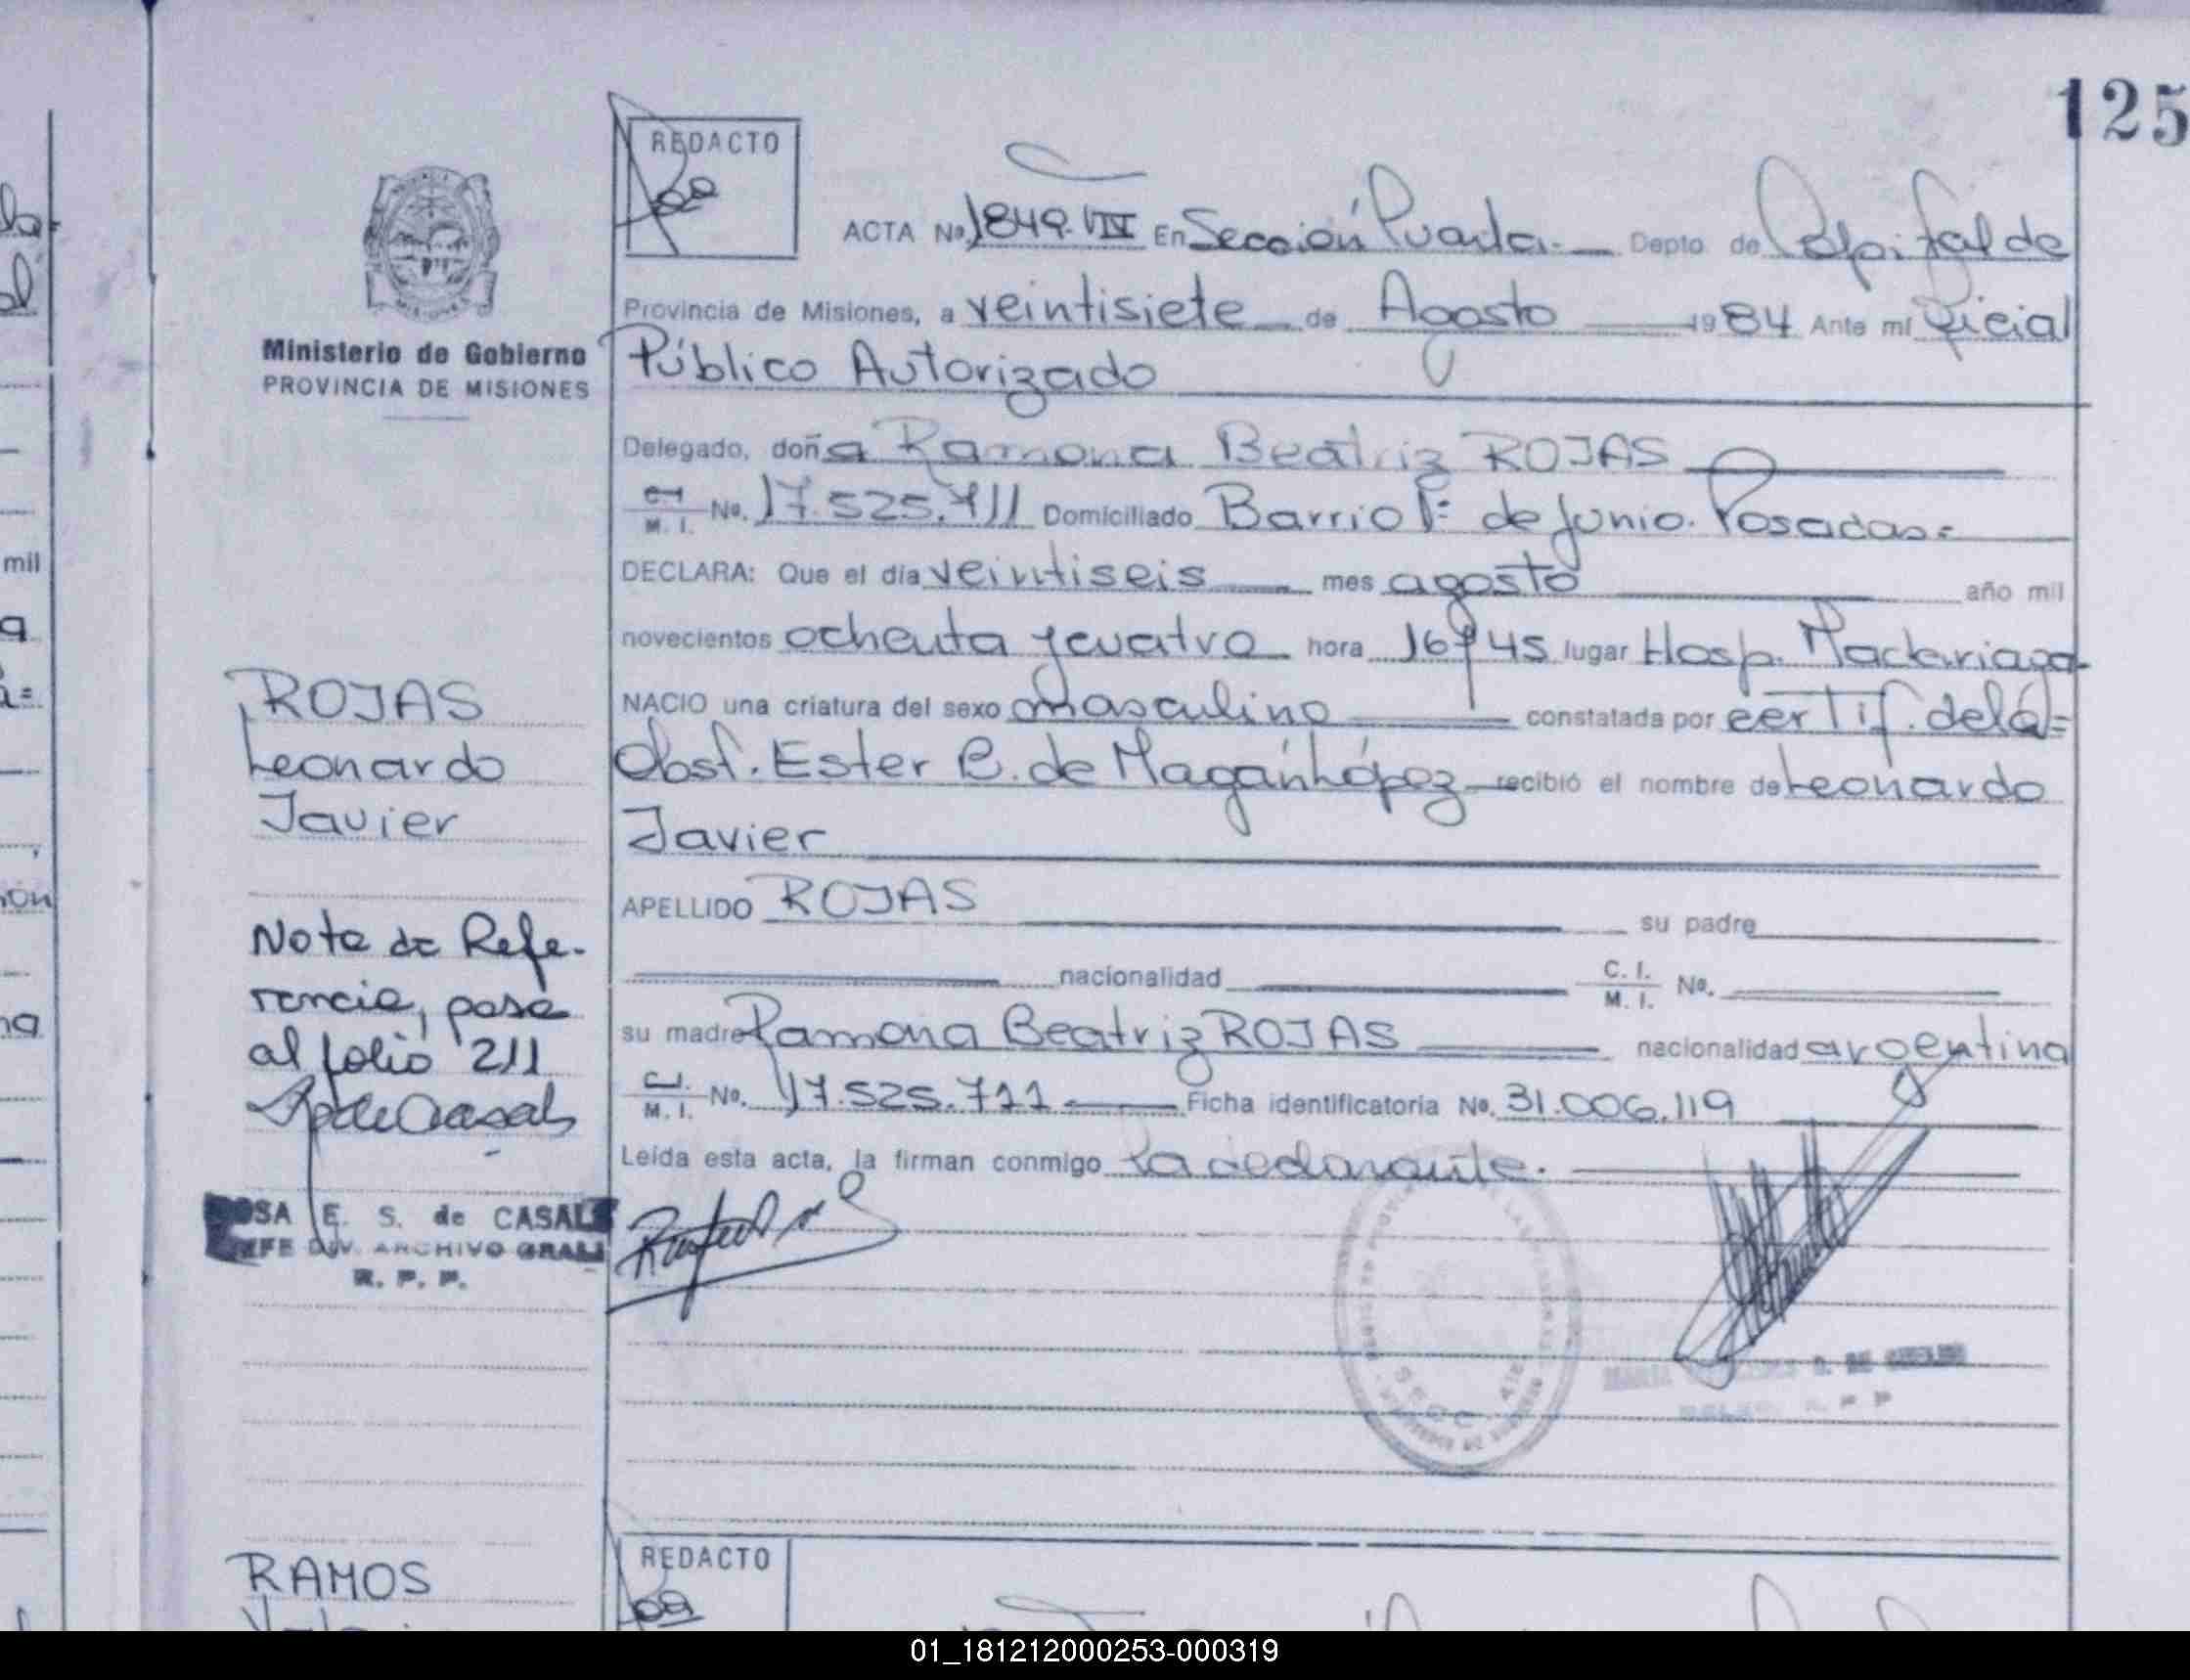 125
REDACTO
ACTA No. 1849-VIII En Sección Cuarta. Depto de Capital de
Provincia de Misiones, a veintisiete de Agosto 1984 Ante mí Oficial
Público Autorizado
Ministerio de Gobierno
PROVINCIA DE MISIONES
Delegado, doña Ramona Beatriz ROJAS
M. I. No. 17.525.711 Domiciliado Barrio 1º de Junio. Posadas=
DECLARA: Que el día veintiseis mes agosto año mil
novecientos ochenta y cuatro hora 16 y 45 lugar Hosp. Madariaga
NACIO una criatura del sexo masculino constatada por certif. de la=
Obst. Ester de Magán López recibió el nombre de Leonardo
Javier
APELLIDO ROJAS su padre
nacionalidad C. I. M. I. No.
su madre Ramona Beatriz ROJAS nacionalidad argentina
M. I. No. 17.525.711 Ficha identificatoria No. 31.006.119
Leída esta acta, la firman conmigo la declarante.
ROJAS
Leonardo
Javier
Nota de Refe-
rencia, pasa
al folio 211
E. S. de CASALS
DIV. ARCHIVO GRAL
R. P. P.
SECC. 4ta
RAMOS
REDACTO
mil
01_181212000253-000319